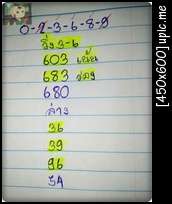 0-2-3-6-8-9
วิ่ง 3-6
603 เน้น
683 รอง
680
ล่าง
36
39
96
54
[450x600] upic.me